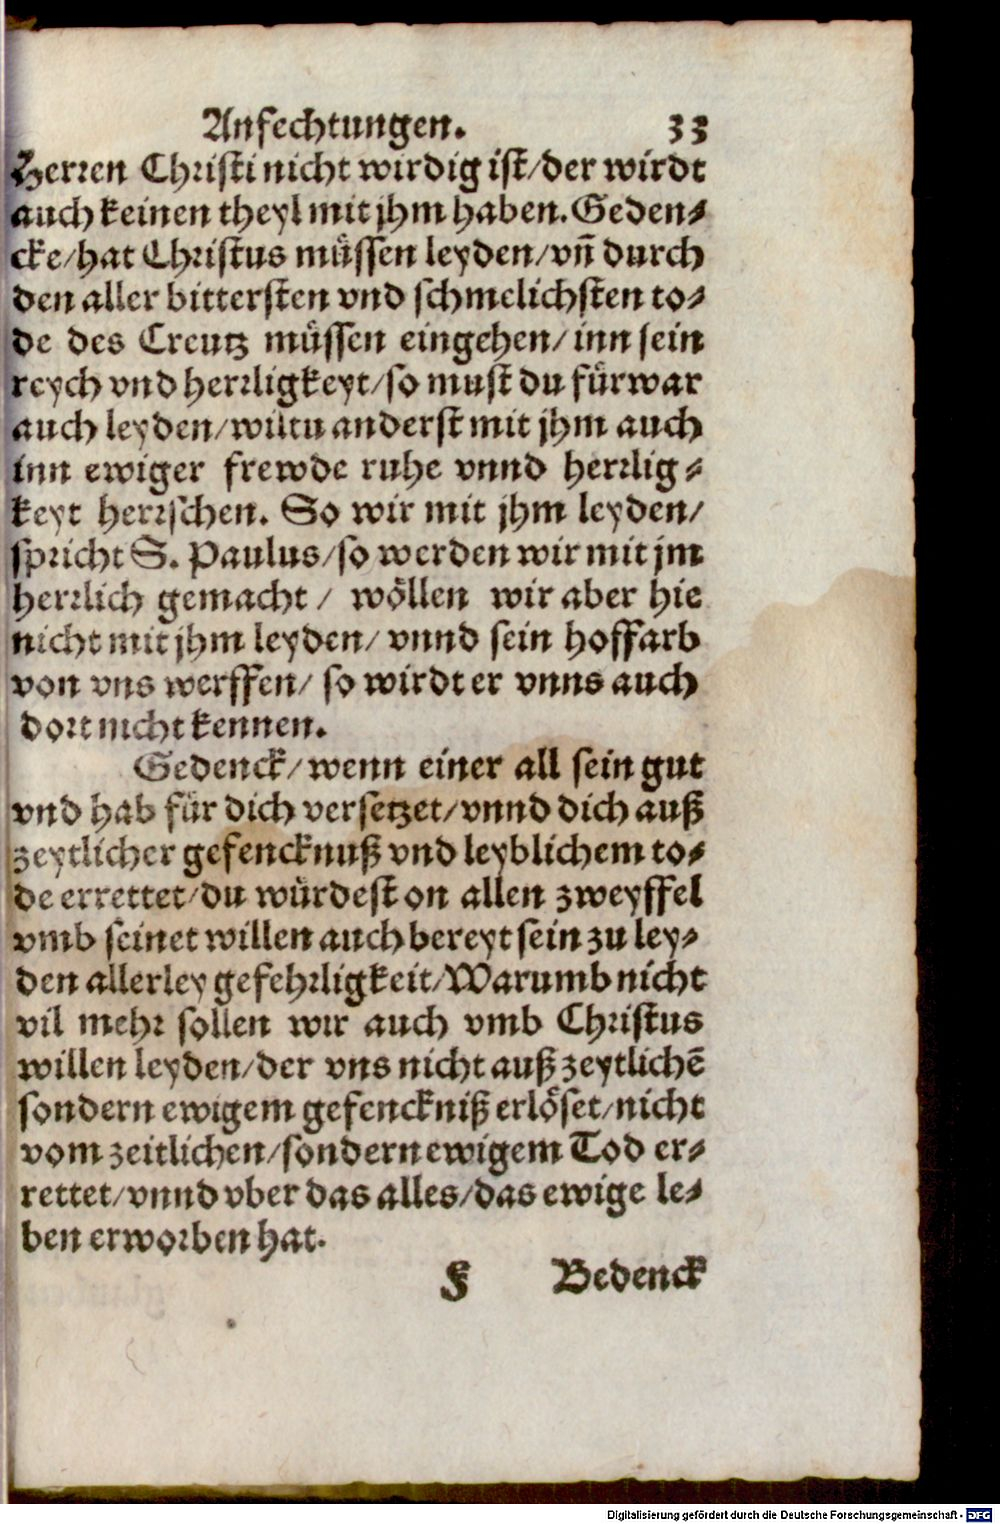 Anfechtungen. 33
Herren Christi nicht wirdig ist/der wirdt
auch keinen theyl mit jhm haben. Geden⸗
cke/hat Christus müssen leyden/vñ durch
den aller bittersten vnd schmelichsten to⸗
de des Creutz müssen eingehen/inn sein
reych vnd herrligkeyt/so must du fürwar
auch leyden/wiltu anderst mit jhm auch
inn ewiger frewde ruhe vnnd herrlig⸗
keyt herrschen. So wir mit jhm leyden/
spricht S. Paulus/so werden wir mit jm
herrlich gemacht/ wöllen wir aber hie
nicht mit jhm leyden/ vnnd sein hoffarb
von vns werffen/ so wirdt er vnns auch
dort nicht kennen.
Gedenck/wenn einer all sein gut
vnd hab für dich versetzet/vnnd dich auß
zeytlicher gefencknuß vnd leyblichem to⸗
de errettet/du würdest on allen zweyffel
vmb seinet willen auch bereyt sein zu ley⸗
den allerley gefehrligkeit/Warumb nicht
vil mehr sollen wir auch vmb Christus
willen leyden/der vns nicht auß zeytlichē
sondern ewigem gefenckniß erlöset/nicht
vom zeitlichen/sondern ewigem Tod er⸗
rettet/vnnd vber das alles/das ewige le⸗
ben erworben hat.
F Bedenck
Digitalisierung gefördert durch die Deutsche Forschungsgemeinschaft - DFG